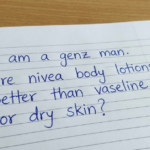 am a genz man.
re nivea body lotion
better than vaseline
or dry skin?